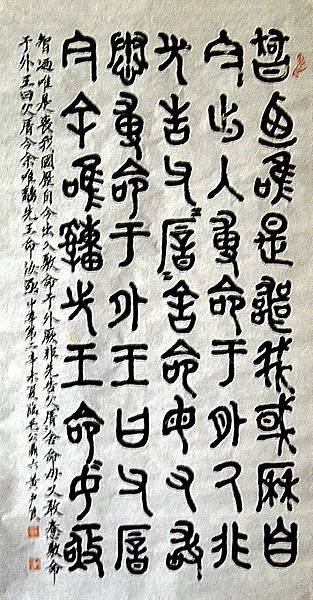 智廼唯是喪我或歷自
今出入敷命于外厥非
先告父厝=舍命毋又敢
惷敷命于外王曰父厝
今余唯先王命女亟
智廼唯是喪我國歷自今出入敷命于外厥非先告父厝舍命毋又敢惷敷命
于外王曰父厝今余唯先王命汝亟 夏臨毛公鼎六 黃